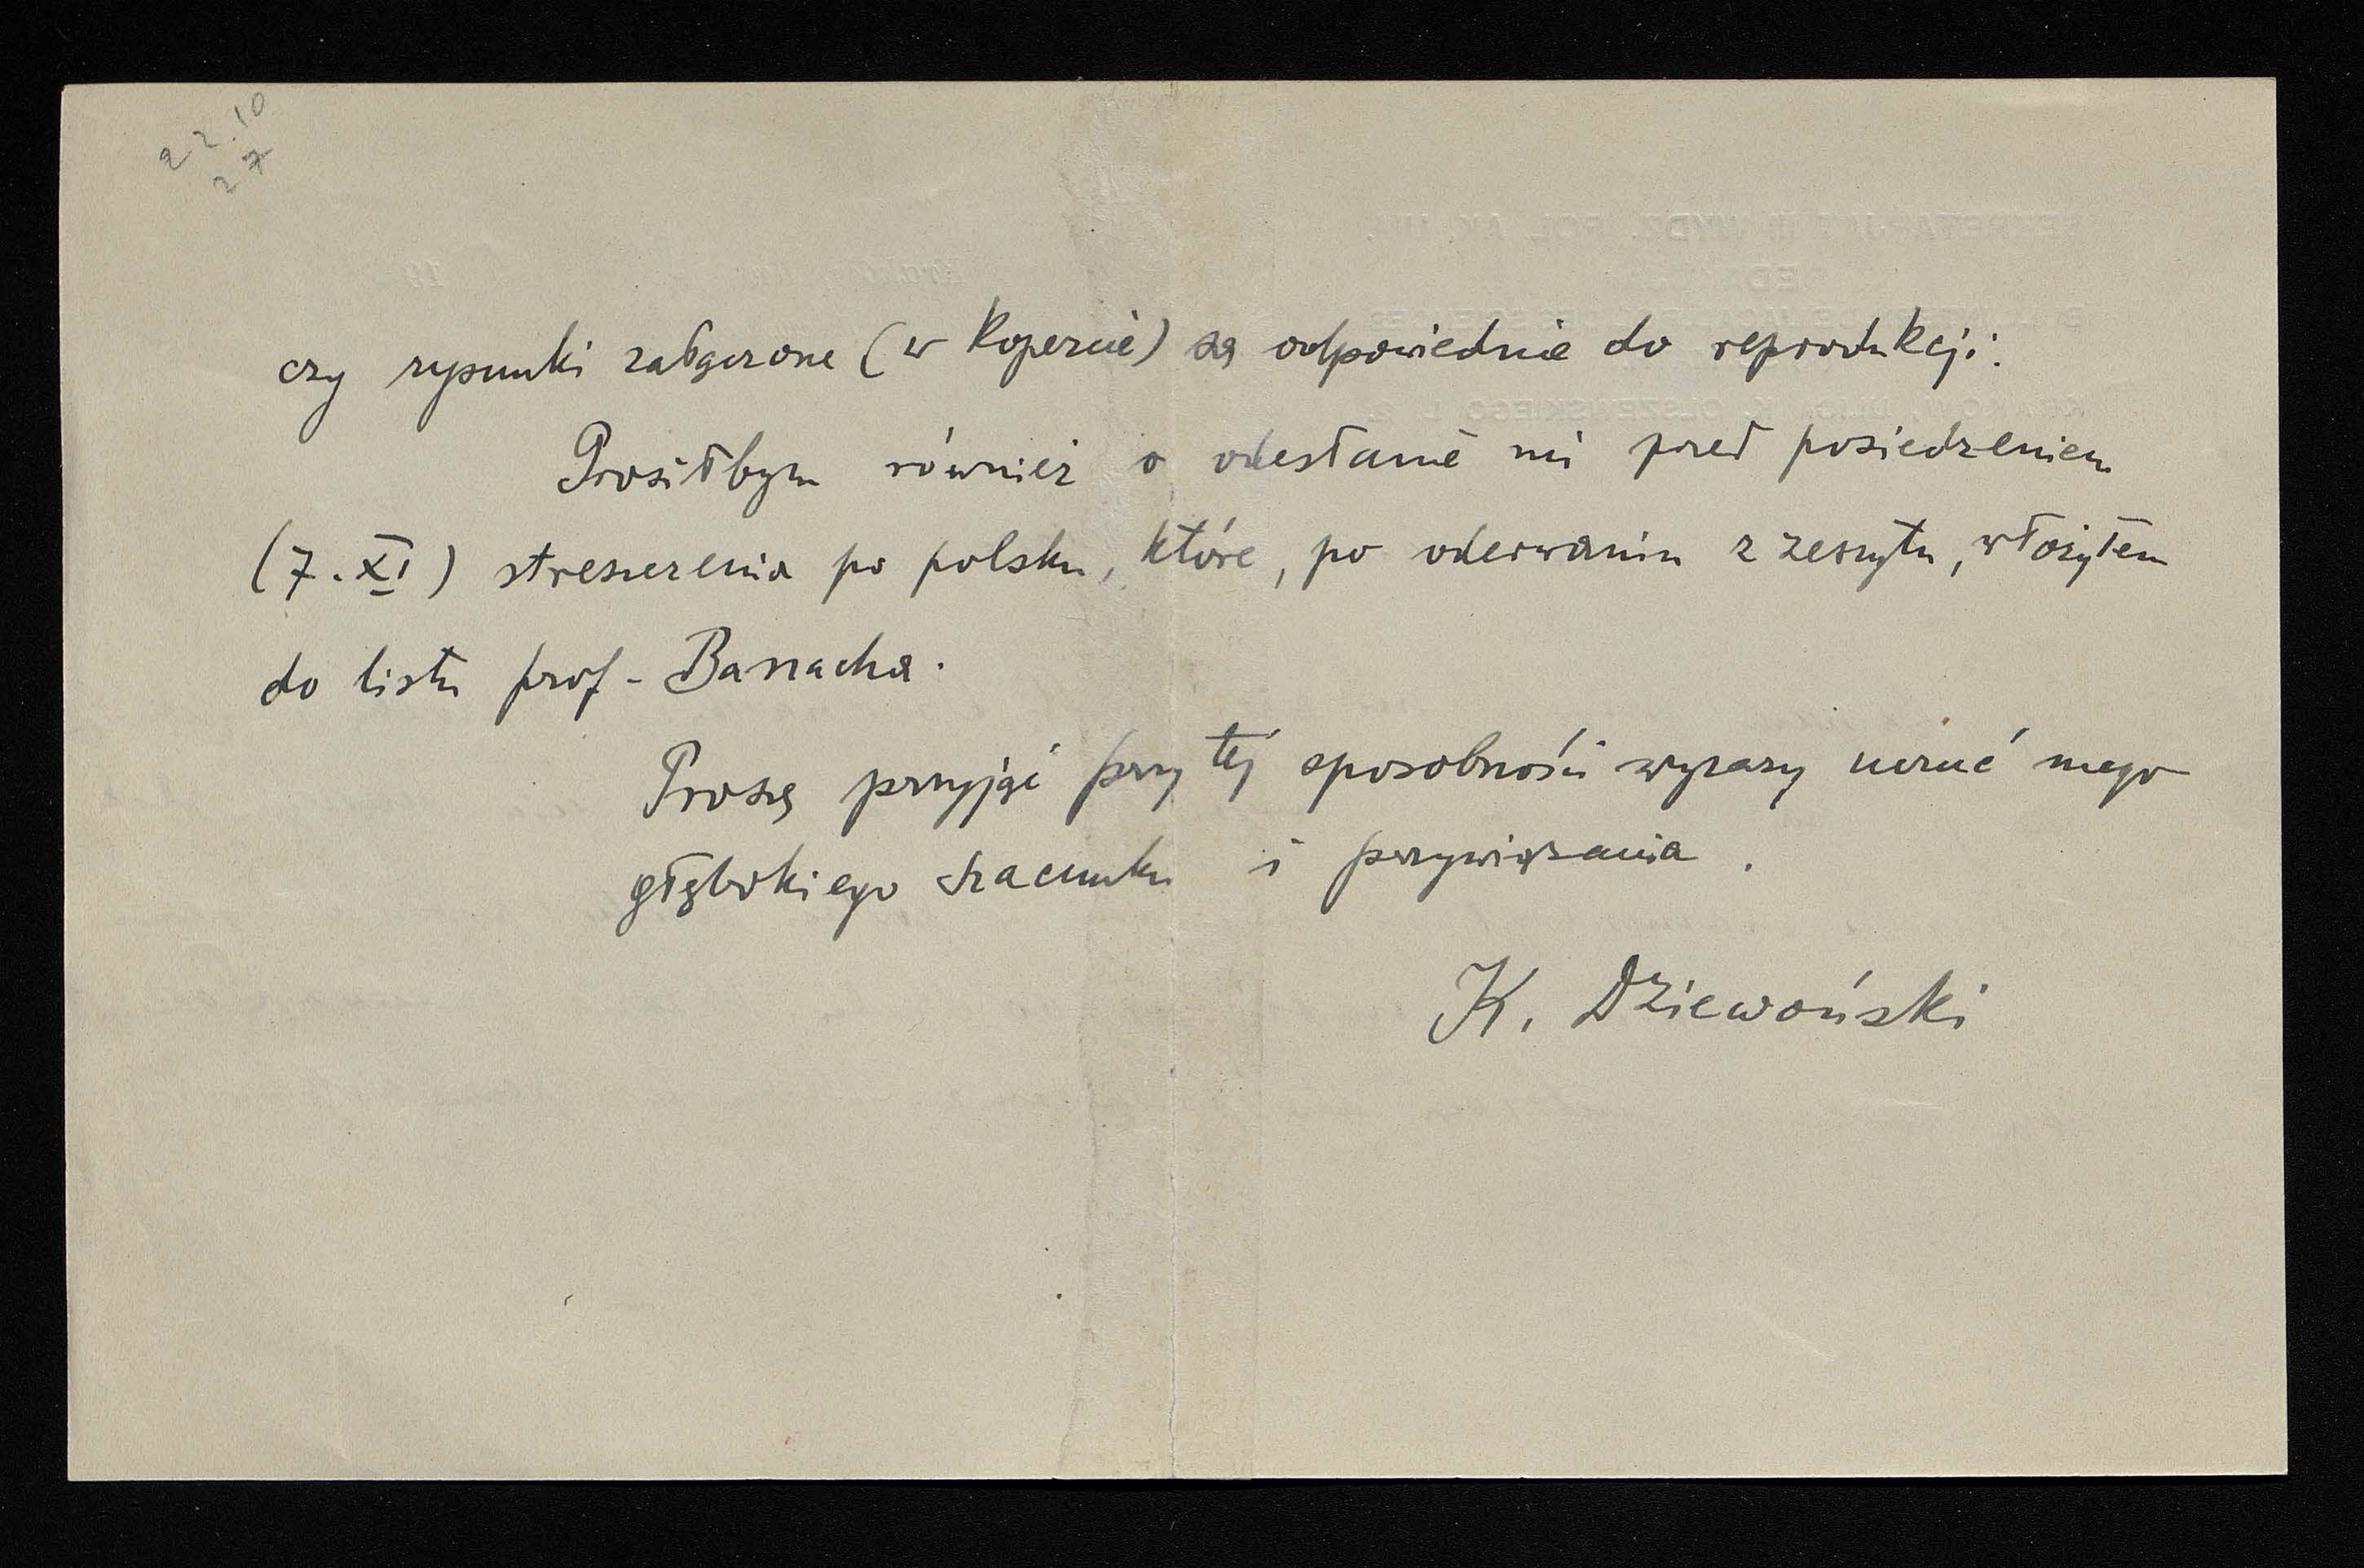 22.10
27
czy rysunki załączone (w kopercie) są odpowiednie do reprodukcji.
Prosiłbym również o odesłanie mi przed posiedzeniem
(7.XI) streszczenia po polsku, które, po oderwaniu z zeszytu, włożyłem
do listu prof. Banacha.
Proszę przyjąć przy tej sposobności wyrazy uczuć mego
głębokiego szacunku i przywiązania.
K. Dziewoński